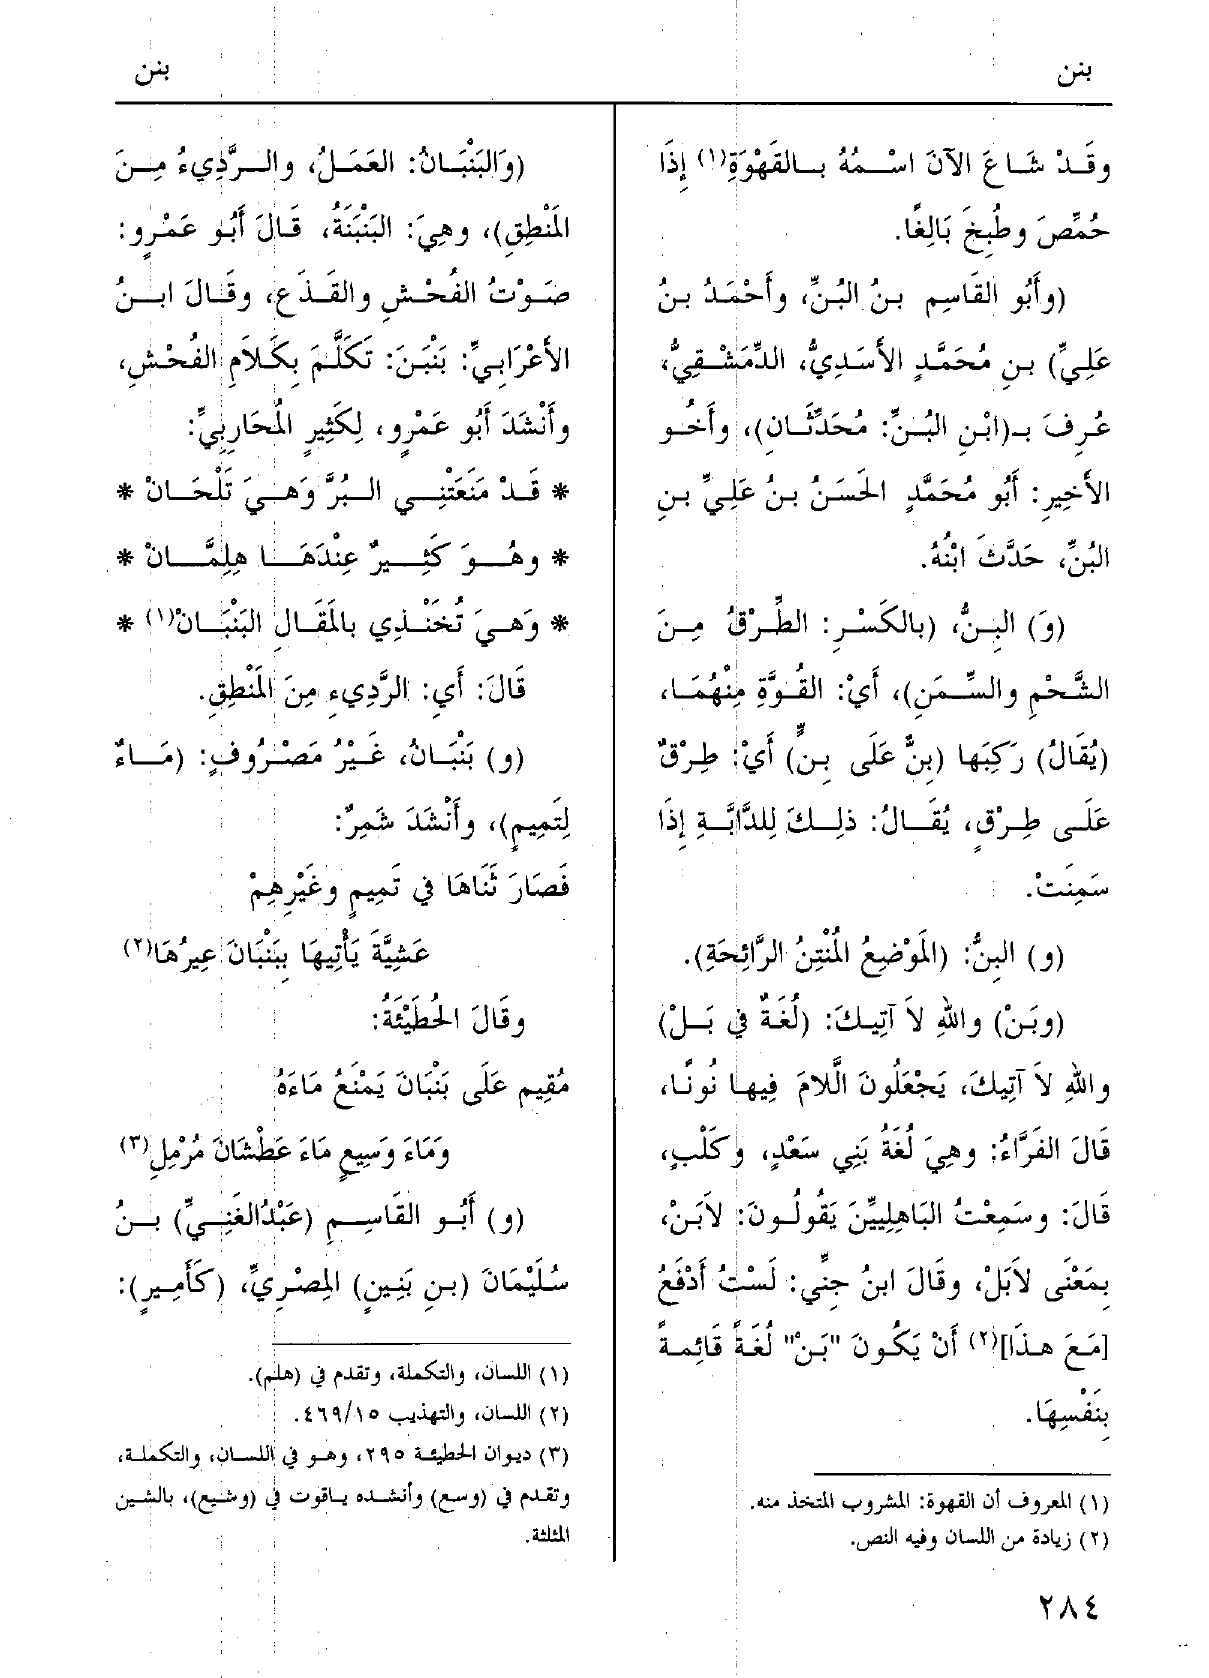 بنن
بنن
وقَدْ شَاعَ الآنَ اسْمُهُ بالقَهْوَةِ(١) إِذَا
حُمِّصَ وطُبِخَ بَالِغًا.
(وأَبُو القَاسِمِ بنُ البُنِّ، وأَحْمَدُ بنُ
عَلِيِّ) بنِ مُحَمَّدٍ الأَسَدِيُّ، الدِّمَشْقِيُّ،
عُرِفَ بـ(ابْنِ البُنِّ: مُحَدِّثَانِ)، وأَخُو
الأَخِيرِ: أَبُو مُحَمَّدٍ الحَسَنُ بنُ عَلِيِّ بنِ
البُنِّ، حَدَّثَ ابْنُهُ.
(وَ) البِنُّ، (بالكَسْرِ: الطِّرْقُ مِنَ
الشَّحْمِ والسِّمَنِ)، أَيْ: القُوَّةِ مِنْهُمَا،
(يُقَالُ) رَكِبَها (بِنٌّ عَلَى بِنٍّ) أَيْ: طِرْقٌ
عَلَى طِرْقٍ، يُقَالُ: ذلِكَ لِلدَّابَّةِ إِذَا
سَمِنَتْ.
(و) البِنُّ: (المَوْضِعُ المُنْتِنُ الرَّائِحَةِ).
(وبَنْ) واللهِ لاَ آتِيكَ: (لُغَةٌ فِي بَلْ)
واللهِ لاَ آتِيكَ، يَجْعَلُونَ اللَّامَ فِيها نُونًا،
قَالَ الفَرَّاءُ: وهِيَ لُغَةُ بَنِي سَعْدٍ، وكَلْبٍ،
قَالَ: وسَمِعْتُ البَاهِلِيِّينَ يَقُولُونَ: لاَبَنْ،
بِمَعْنَى لاَبَلْ، وقَالَ ابنُ جِنِّي: لَسْتُ أَدْفَعُ
[مَعَ هذَا](٢) أَنْ يَكُونَ "بَنْ" لُغَةً قَائِمةً
بِنَفْسِهَا.
(١) المعروف أن القهوة: المشروب المتخذ منه.
(٢) زيادة من اللسان وفيه النص.
(والبَنْبَانُ: العَمَلُ، والرَّدِيءُ مِنَ
المَنْطِقِ)، وهِيَ: البَنْبَنَةُ، قَالَ أَبُو عَمْرٍو:
صَوْتُ الفُحْشِ والقَذَعِ، وقَالَ ابنُ
الأَعْرَابِيِّ: بَنْبَنَ: تَكَلَّمَ بِكَلاَمِ الفُحْشِ،
وأَنْشَدَ أَبُو عَمْرٍو، لِكَثِيرٍ المُحَارِبِيِّ:
* قَدْ مَنَعَتْنِي البُرَّ وَهْيَ تَلْحَانْ *
* وهُوَ كَثِيرٌ عِنْدَهَا هِلِمَّانْ *
* وَهْيَ تُخَنْذِي بالمَقَالِ البَنْبَانْ(١) *
قَالَ: أَي: الرَّدِيءِ مِنَ المَنْطِقِ.
(و) بَنْبَانُ، غَيْرُ مَصْرُوفٍ: (مَاءٌ
لِتَمِيمٍ)، وأَنْشَدَ شَمِرٌ:
فَصَارَ ثَنَاهَا فِي تَمِيمٍ وغَيْرِهِمْ
عَشِيَّةَ يَأْتِيهَا بِبَنْبَانَ عِيرُهَا(٢)
وقَالَ الحُطَيْئَةُ:
مُقِيم عَلَى بَنْبَانَ يَمْنَعُ مَاءَهُ
وَمَاءَ وَسِيعٍ مَاءَ عَطْشَانَ مُرْمِلِ(٣)
(و) أَبُو القَاسِمِ (عَبْدُالغَنِيِّ) بنُ
سُلَيْمَانَ (بنِ بَنِينٍ) المِصْرِيِّ، (كَأَمِيرٍ):
(١) اللسان، والتكملة، وتقدم في (هلم).
(٢) اللسان، والتهذيب ٤٦٩/١٥.
(٣) ديوان الحطيئة ٢٩٥، وهو في اللسان، والتكملة،
وتقدم في (وسع) وأنشده ياقوت في (وشيع)، بالشين
المثلثة.
٢٨٤